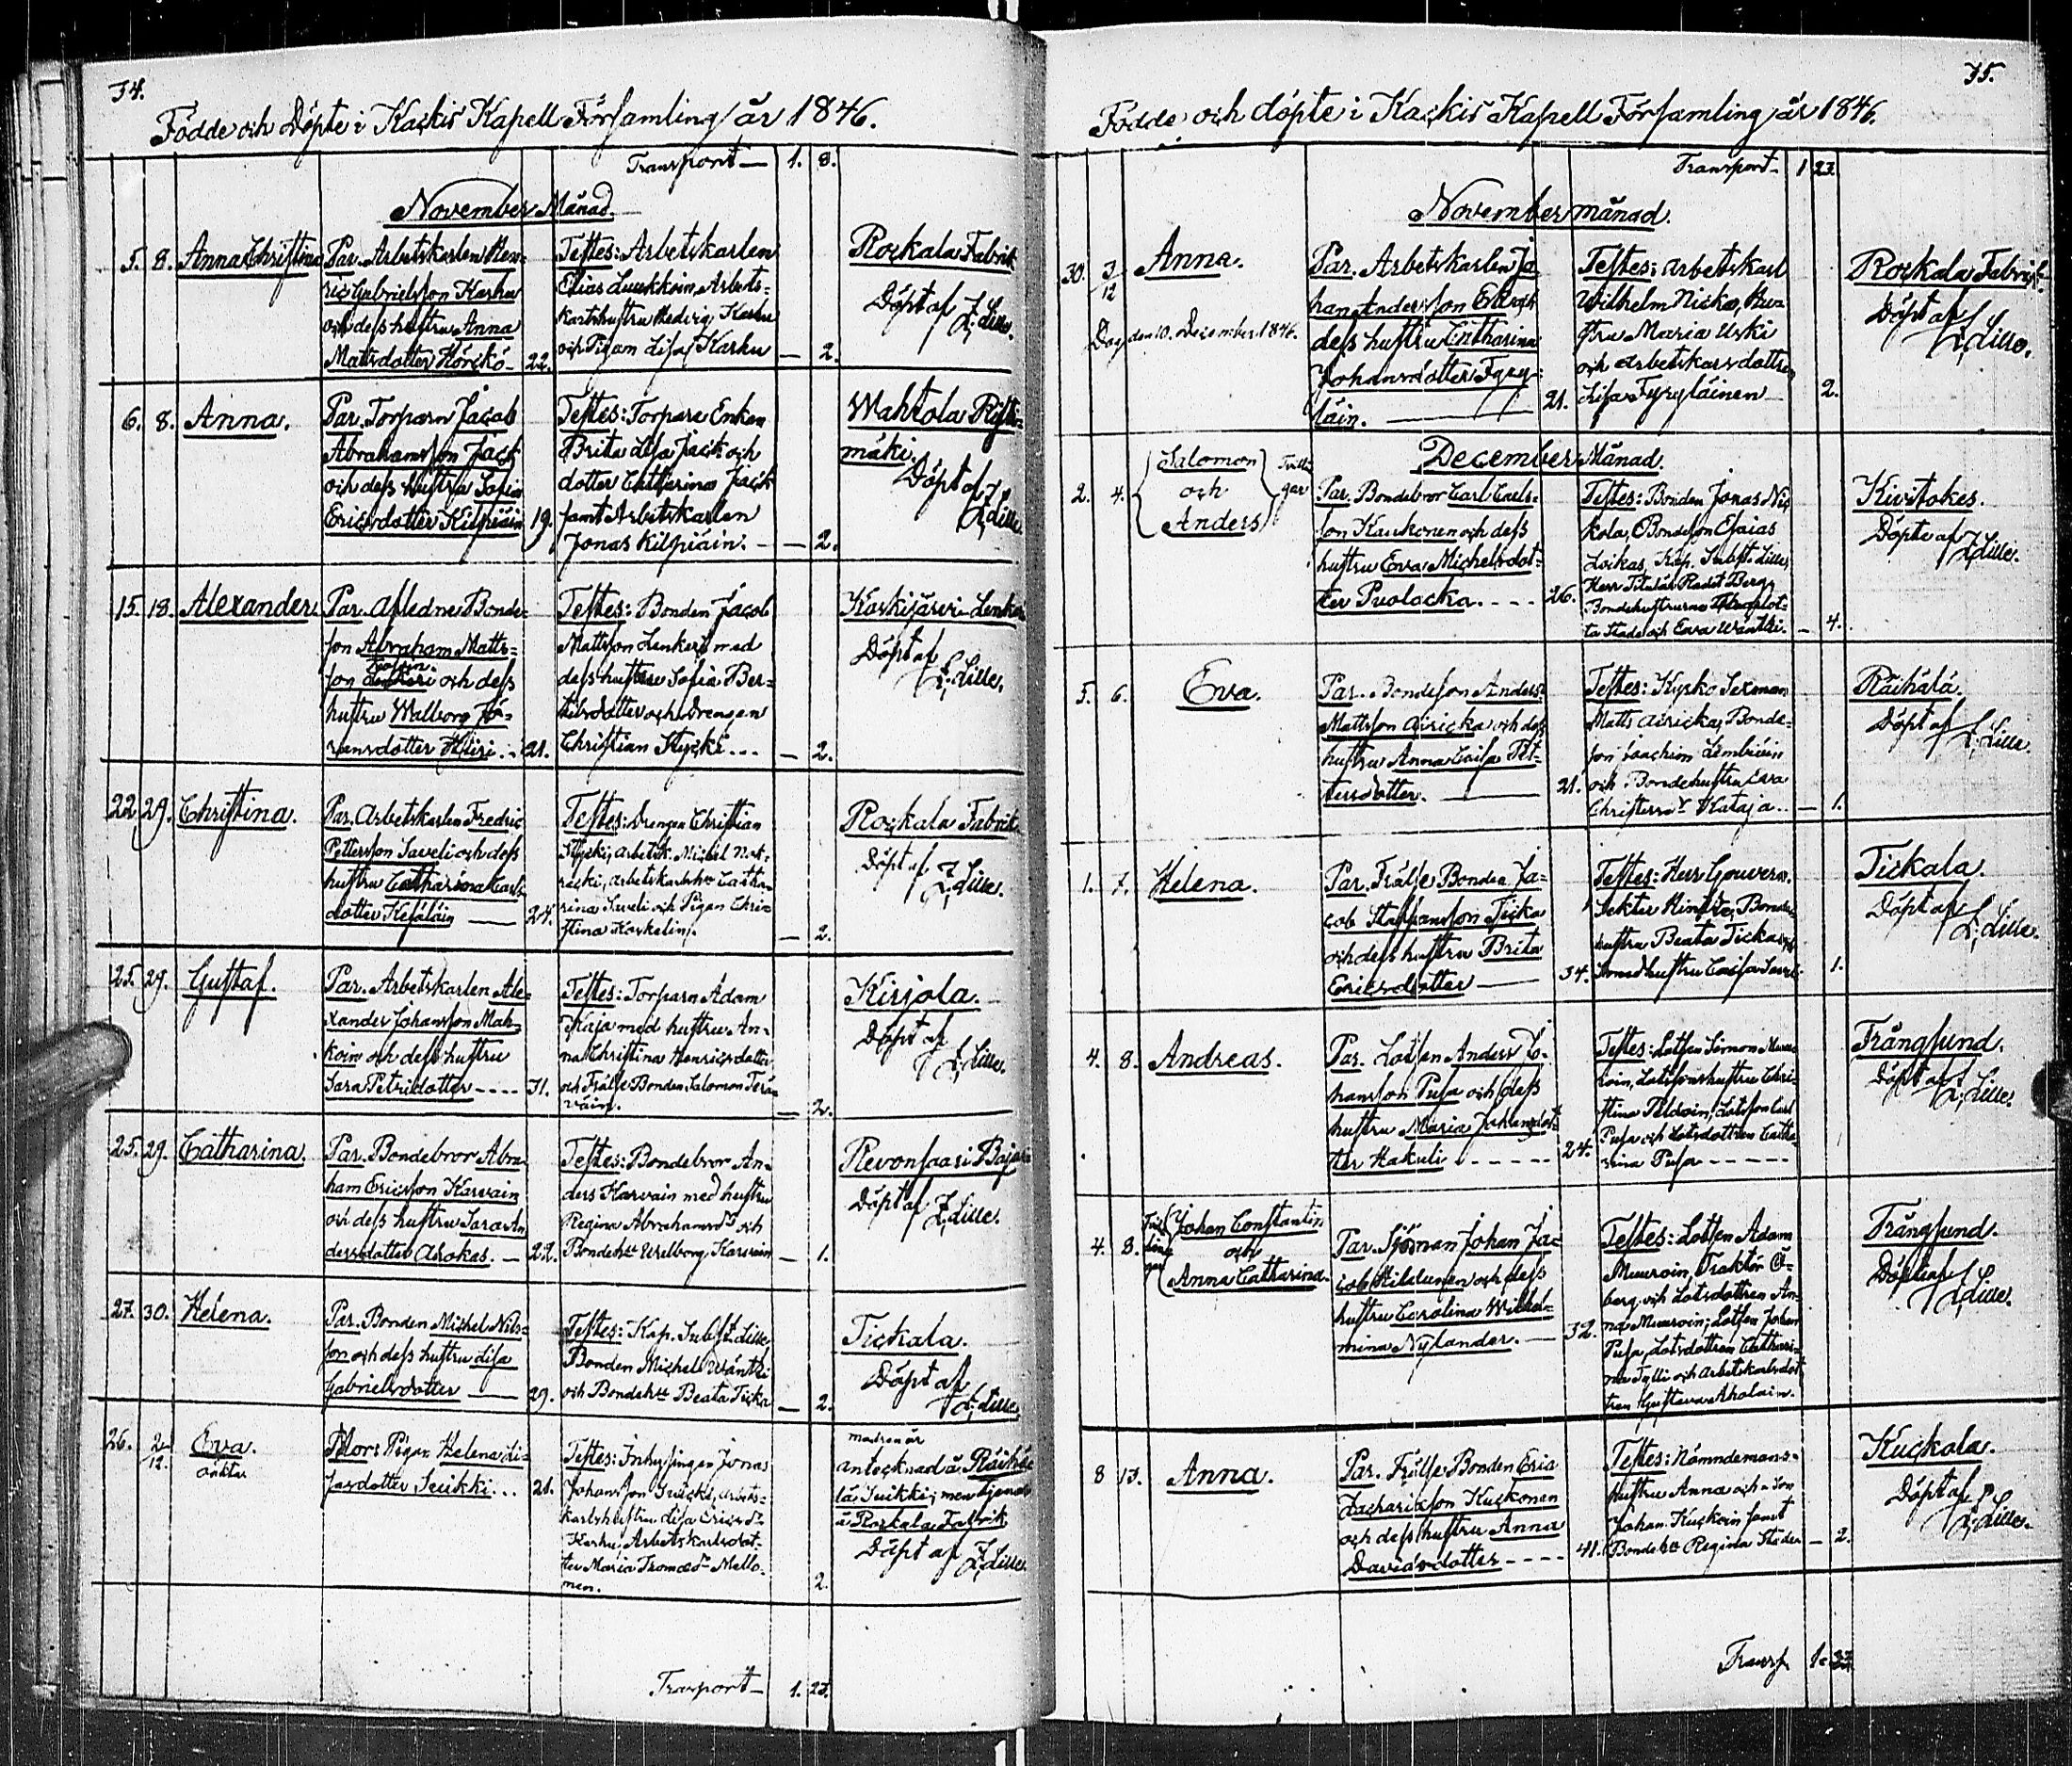 34.
Födde och Döpte i Kackis Kapell Församling år 1846.
Transport — 1. 8.
November Månad.
5. 8. Anna Christina
Par. Arbetskarlen Hen-
ric Gabrielsson Karhu
och dess hustru Anna
Mattsdotter Hörckö — 22.
Testes: Arbetskarlen
Elias Luukkoin, Arbets-
karlshustru Hedvig Karhu
och Pigan Lisa Karhu — 2.
Rockala Fabrik
Döpt af
Z. Lille.
6. 8. Anna.
Par. Torparn Jacob
Abrahamsson Jack
och dess hustru Sofia
Ericsdotter Kilpiäin 19.
Testes: Torpare Enkan
Brita Lisa Jack och
dotter Catharina Jack
samt Arbetskarlen
Jonas Kilpiäin. — 2.
Mahtola Risti-
mäki.
Döpt af
Z. Lille
15. 18. Alexander.
Par. Afledne Bonde-
son Abraham Matts-
son och dess
hustru Walborg Jö-
ransdotter Hiiri. .. 21.
Testes: Bonden Jacob
Mattsson Lenkeri med
dess hustru Sofia Ber-
tilsdotter och Drengen
Christian Kycki ... — 2.
Karkijärvi Lenkeri
Döpt af
Z. Lille.
22. 29. Christina.
Par. Arbetskarlen Fredric
Pettersson Saveli och dess
hustru Catharina Carls-
dotter Kesäläin — 24.
Testes: Drengen Christian
Kycki, arbetsk. Michel
arbetskarlsh:u Catha-
rina Saveli och Pigan Chri-
stina Koskelin. — 2.
Rockala Fabrik
Döpt af
Z. Lille.
25. 29. Gustaf.
Par. Arbetskarlen Ale-
xander Johansson Mah-
koin och dess hustru
Sara Petridotter ---- 31.
Testes: Torparn Adam
Kaja med hustru An-
na Christina Henricsdotter
och Frälse Bonden Salomon Terä-
väin. — 2.
Kirjola.
Döpt af
Z. Lille.
25. 29. Catharina.
Par. Bondebror Abra-
ham Ericsson Karvain
och dess hustru Sara An-
dersdotter Ahokas. — 22.
Testes: Bondebror An-
ders Karvain med hustru
Regina Abrahamsd:r och
Bondeh:u Walborg Karvain — 1.
Revonsaari
Döpt af
Z. Lille.
27. 30. Helena.
Par. Bonden Michel Nils-
son och dess hustru Lisa
Gabrielsdotter — 29.
Testes: Kap. Subst. Lille,
Bonden Michel Wäntti
och Bondeh:u Beata Ticka — 2.
Tickala.
Döpt af
Z. Lille.
26. 2/12. Eva.
oäkta
Mor: Pigan Helena
Suikki ... 21.
Testes: Inhysingen Jonas
Johansson arbets-
karlshustru Lisa Ericsd:r
Karhu, Arbetskarlsdot-
ter Maria Thomasd:r Mello-
nen. 2.
modren är
antecknad å Räihä-
lä Suikki; men tjenar
å Rockala Fabrik
Döpt af Z. Lille
Transport — 1. 23.
35.
Födde och döpte i Kackis Kapell Församling år 1846.
Transport — 1 23.
November månad.
30. 3/12 Anna.
Dog den 10. December 1846.
Par. Arbetskarlen Jo-
han Andersson och
dess hustru Catharina
Johansdotter Fyry-
läin. — 21.
Testes: Arbetskarl
Wilhelm Nicko, Hus-
tru Maria Uski
och arbetskarsdottren
Lisa Fyryläinen — 2.
Rockala Fabrik.
Döpt af
Z. Lille.
December Månad.
2. 4. Salomon
och
Anders
Tvillin-
gar
Par. Bondebror Carl Carls-
son Kaukonen och dess
hustru Eva Michelsdot-
ter Puolacka. .... 26.
Testes: Bonden Jonas Nic-
kola, Bondeson Esaias
Loikas, Kap. Subst. Lille,
Herr Titulär Rådet Berg,
Bondehustrurna
och Eva Wäntti. — 4.
Kivitokes.
Döpte af
Z. Lille.
5. 6. Eva.
Par. Bondeson Anders
Mattsson Airicka och dess
hustru Anna Caisa Pet-
tersdotter. — 21.
Testes: Kyrko Sexman
Matts Airicka, Bonde-
son Joachim Lembiäin
och Bondehustru Eva
Christersd:r Kataja .. — 1.
Räihälä.
Döpt af
Z. Lille.
1. 7. Helena.
Par. Frälse Bonden Ja-
cob Staffansson Ticka
och dess hustru Brita
Ericsdotter — 34.
Testes: Herr Gouvern.
Sekter Hintze, Bonde-
hustru Beata Ticka och
hustru Caisa Saveli 1.
Tickala.
Döpt af
Z. Lille.
4. 8. Andreas.
Par. Lotsen Anders Jo-
hansson Pusa och dess
hustru Maria Johansdot-
ter Hakuli. ----- 24.
Testes: Lotsen Simon Muu-
roin, Lotsenshustru Chri-
stina Lotsson Carl
Pusa och Lotsdottren Catha-
rina Pusa -----
Trångsund.
Döpt af
Z. Lille.
4. 8. Johan Constantin
och
Anna Catharina.
Par. Sjöman Johan Jac-
cob Hildunen och dess
hustru Carolina Wilhel-
mina Nylander. — 32.
Testes: Lotsen Adam
Muuroin, Traktör Ö-
berg och Lotsdottren An-
na Muuroin; Lotsen Johan
Pusa, Lotsdottren Cathari-
na Tylli och Arbetskarlsdot-
tren Gustava Aholain.
Trångsund.
Döpte af
Z. Lille.
8 13. Anna.
Par. Frälse Bonden Eric
Zachariasson Kuckonen
och dess hustru Anna
Davidsdotter ---- 41.
Testes: Nämndemans-
hustru Anna och Son
Johan Kuckoin samt
Bondeh:u Regina — 2.
Kuckola.
Döpt af
Z. Lille.
Transp.